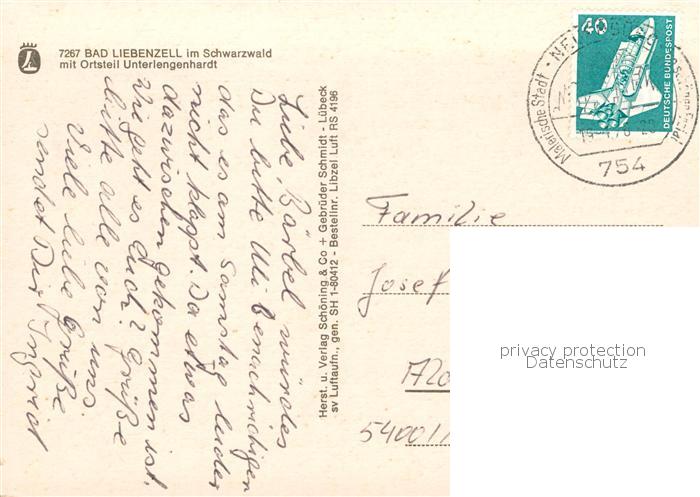 7267 BAD LIEBENZELL im Schwarzwald
mit Ortsteil Unterlengenhardt
Liebe Bärbel, würdest
Du bitte Uli benachrichtigen
das es am Samstag leider
nicht klappt. Da etwas
dazwischen gekommen ist.
Wie geht es Euch? Grüße
bitte alle von uns
Viele liebe Grüße
sendet Dir Ingrid
Herst. u. Verlag Schöning & Co + Gebrüder Schmidt - Lübeck
sv Luftaufn., gen. SH 1-80412 - Bestellnr. Libzel Luft RS 4196
40
DEUTSCHE BUNDESPOST
Malerische Stadt
754
Familie
Josef
5400
privacy protection
Datenschutz